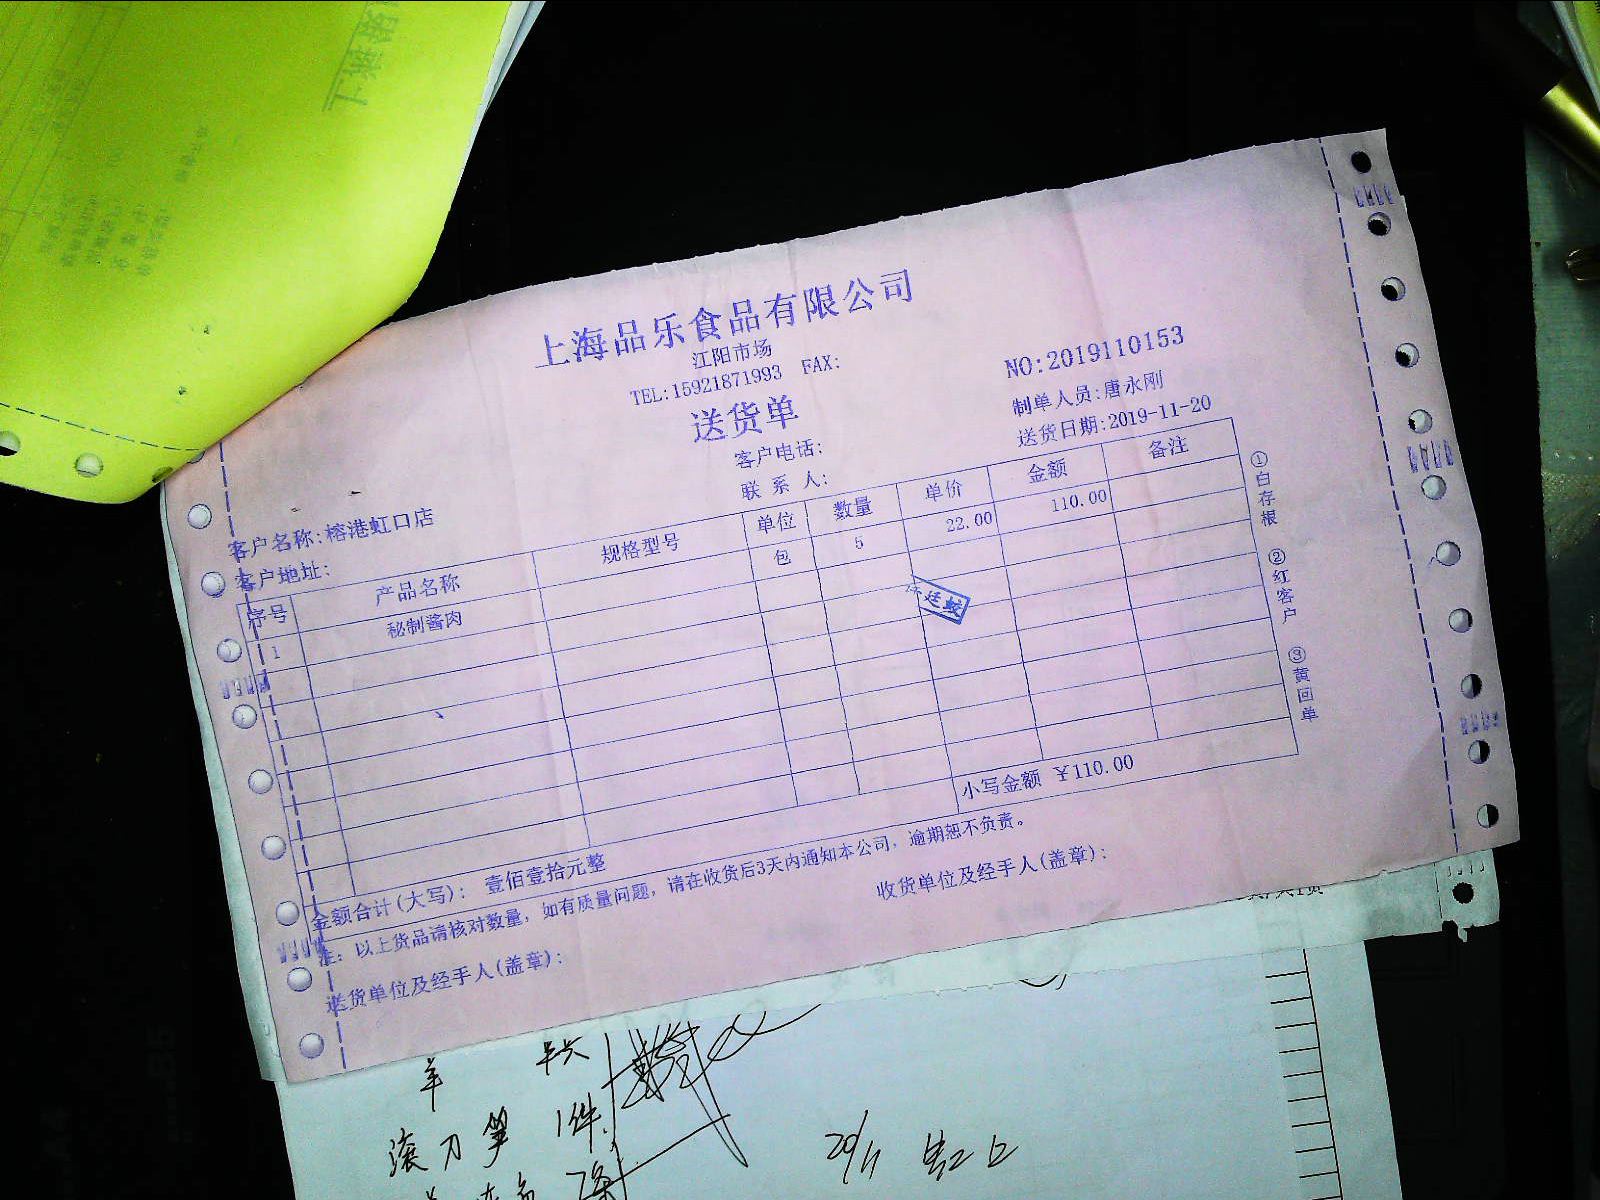 上海品乐食品有限公司
江阳市场
TEL:15921871993 FAX:
NO:2019110153
送货单
制单人员:唐永刚
客户电话:
送货日期:2019-11-20
联 系 人:
客户名称:榕港虹口店
客户地址:
序号 产品名称 规格型号 单位 数量 单价 金额 备注
1 秘制酱肉 包 5 22.00 110.00
①白存根 ②红客户 ③黄回单
小写金额 ￥110.00
金额合计(大写): 壹佰壹拾元整
注: 以上货品请核对数量, 如有质量问题, 请在收货后3天内通知本公司, 逾期恕不负责。
送货单位及经手人(盖章):
收货单位及经手人(盖章):
滚刀笋 1件
20/11 虹口